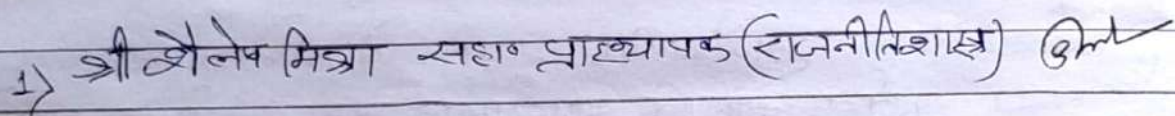 1) श्री शैलेष मिश्रा सहा० प्राध्यापक (राजनीतिशास्त्र)